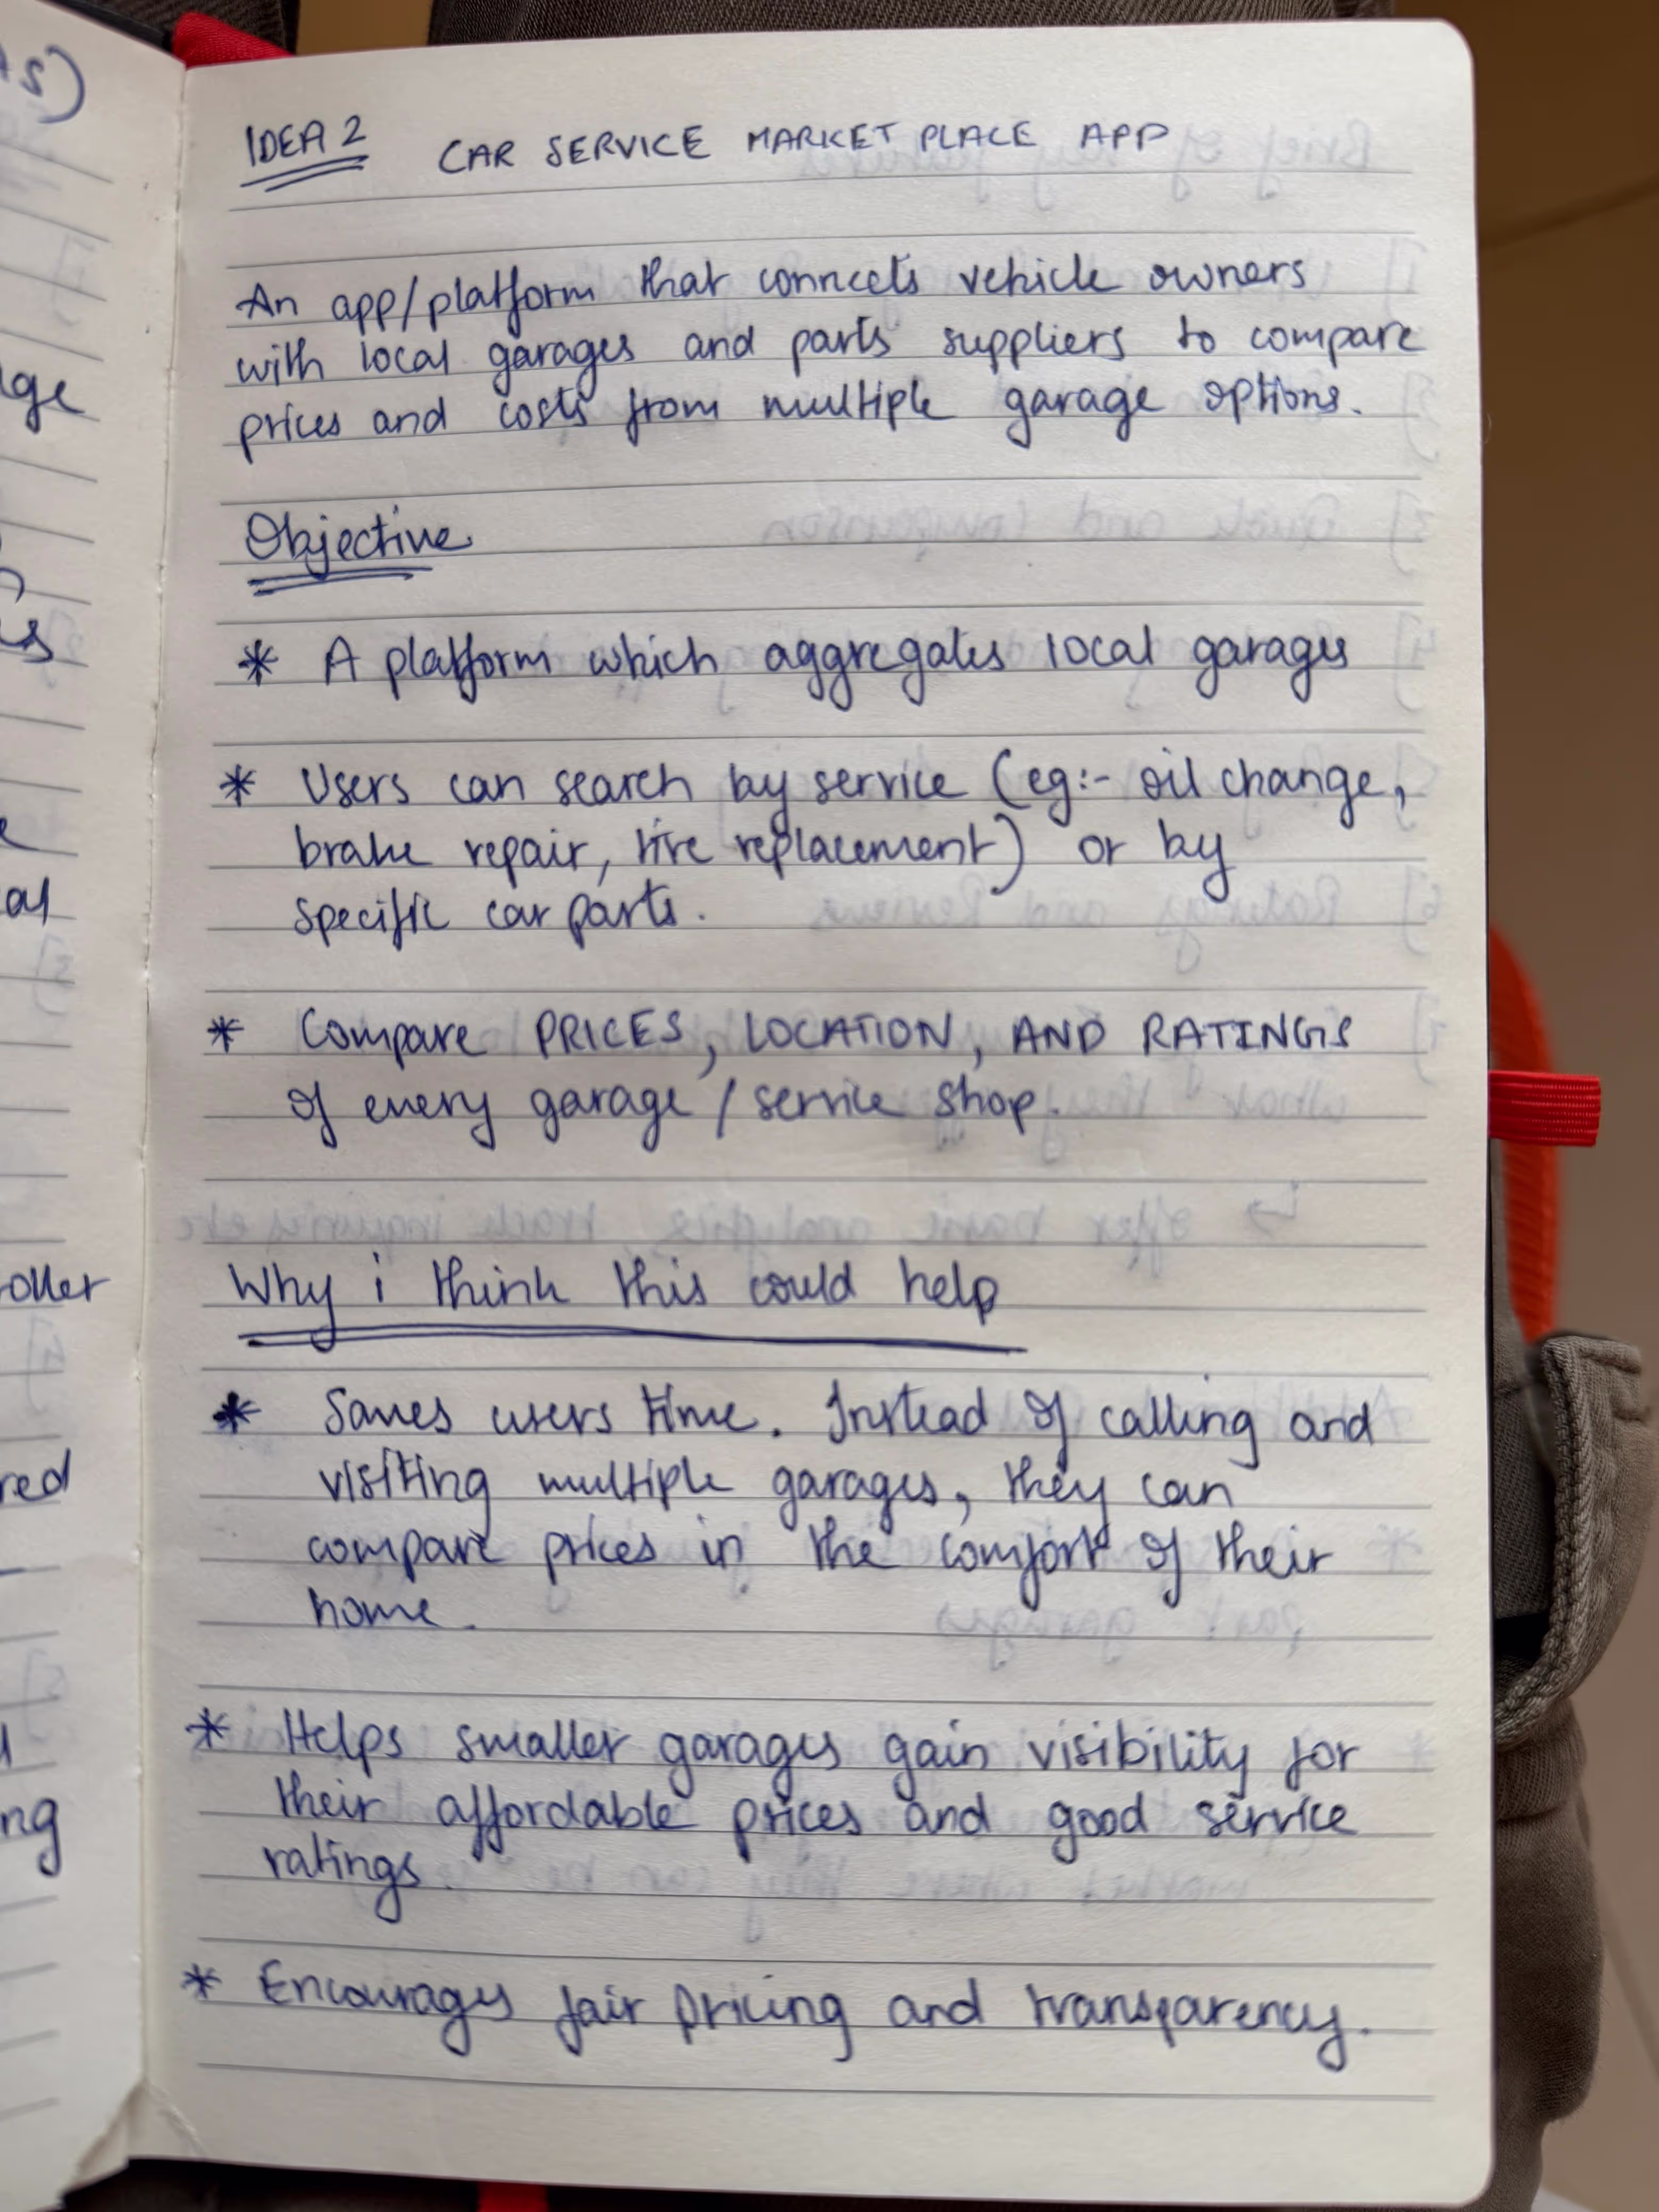 IDEA 2 CAR SERVICE MARKET PLACE APP
An app/platform that connects vehicle owners
with local garages and parts suppliers to compare
prices and costs from multiple garage options.
Objective
* A platform which aggregates local garages
* Users can search by service (eg:- oil change,
brake repair, tire replacement) or by
specific car parts.
* Compare PRICES, LOCATION, AND RATINGS
of every garage / service shop.
Why i think this could help
* Saves users time. Instead of calling and
visiting multiple garages, they can
compare prices in the comfort of their
home.
* Helps smaller garages gain visibility for
their affordable prices and good service
ratings.
* Encourages fair pricing and transparency.